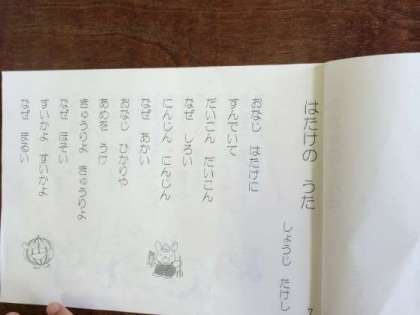 はたけの うた
しょうじ たけし
おなじ はたけに
すんでいて
だいこん だいこん
なぜ しろい
にんじん にんじん
なぜ あかい
おなじ ひかりや
あめを うけ
きゅうりよ きゅうりよ
なぜ ほそい
すいかよ すいかよ
なぜ まるい
7